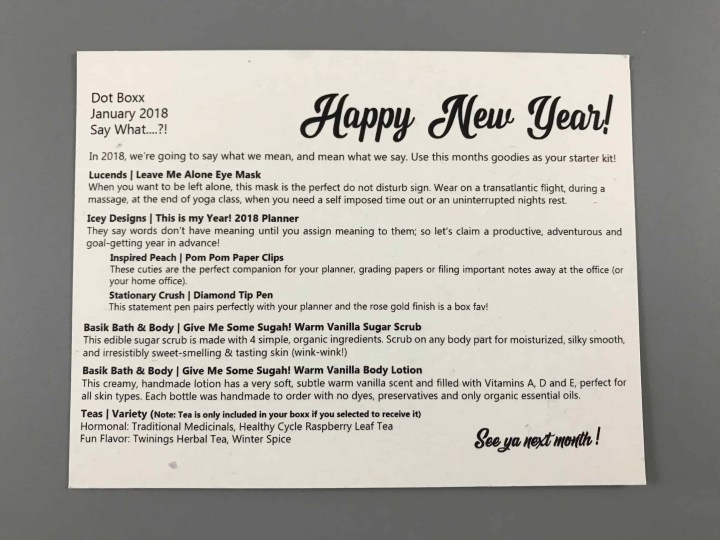 Dot Boxx
January 2018
Say What....?!
Happy New Year!
In 2018, we're going to say what we mean, and mean what we say. Use this months goodies as your starter kit!
Lucends | Leave Me Alone Eye Mask
When you want to be left alone, this mask is the perfect do not disturb sign. Wear on a transatlantic flight, during a
massage, at the end of yoga class, when you need a self imposed time out or an uninterrupted nights rest.
Icey Designs | This is my Year! 2018 Planner
They say words don't have meaning until you assign meaning to them; so let's claim a productive, adventurous and
goal-getting year in advance!
Inspired Peach | Pom Pom Paper Clips
These cuties are the perfect companion for your planner, grading papers or filing important notes away at the office (or
your home office).
Stationary Crush | Diamond Tip Pen
This statement pen pairs perfectly with your planner and the rose gold finish is a box fav!
Basik Bath & Body | Give Me Some Sugah! Warm Vanilla Sugar Scrub
This edible sugar scrub is made with 4 simple, organic ingredients. Scrub on any body part for moisturized, silky smooth,
and irresistibly sweet-smelling & tasting skin (wink-wink!)
Basik Bath & Body | Give Me Some Sugah! Warm Vanilla Body Lotion
This creamy, handmade lotion has a very soft, subtle warm vanilla scent and filled with Vitamins A, D and E, perfect for
all skin types. Each bottle was handmade to order with no dyes, preservatives and only organic essential oils.
Teas | Variety (Note: Tea is only included in your boxx if you selected to receive it)
Hormonal: Traditional Medicinals, Healthy Cycle Raspberry Leaf Tea
Fun Flavor: Twinings Herbal Tea, Winter Spice
See ya next month !